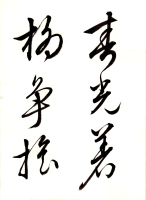 春光著
楊爭搖